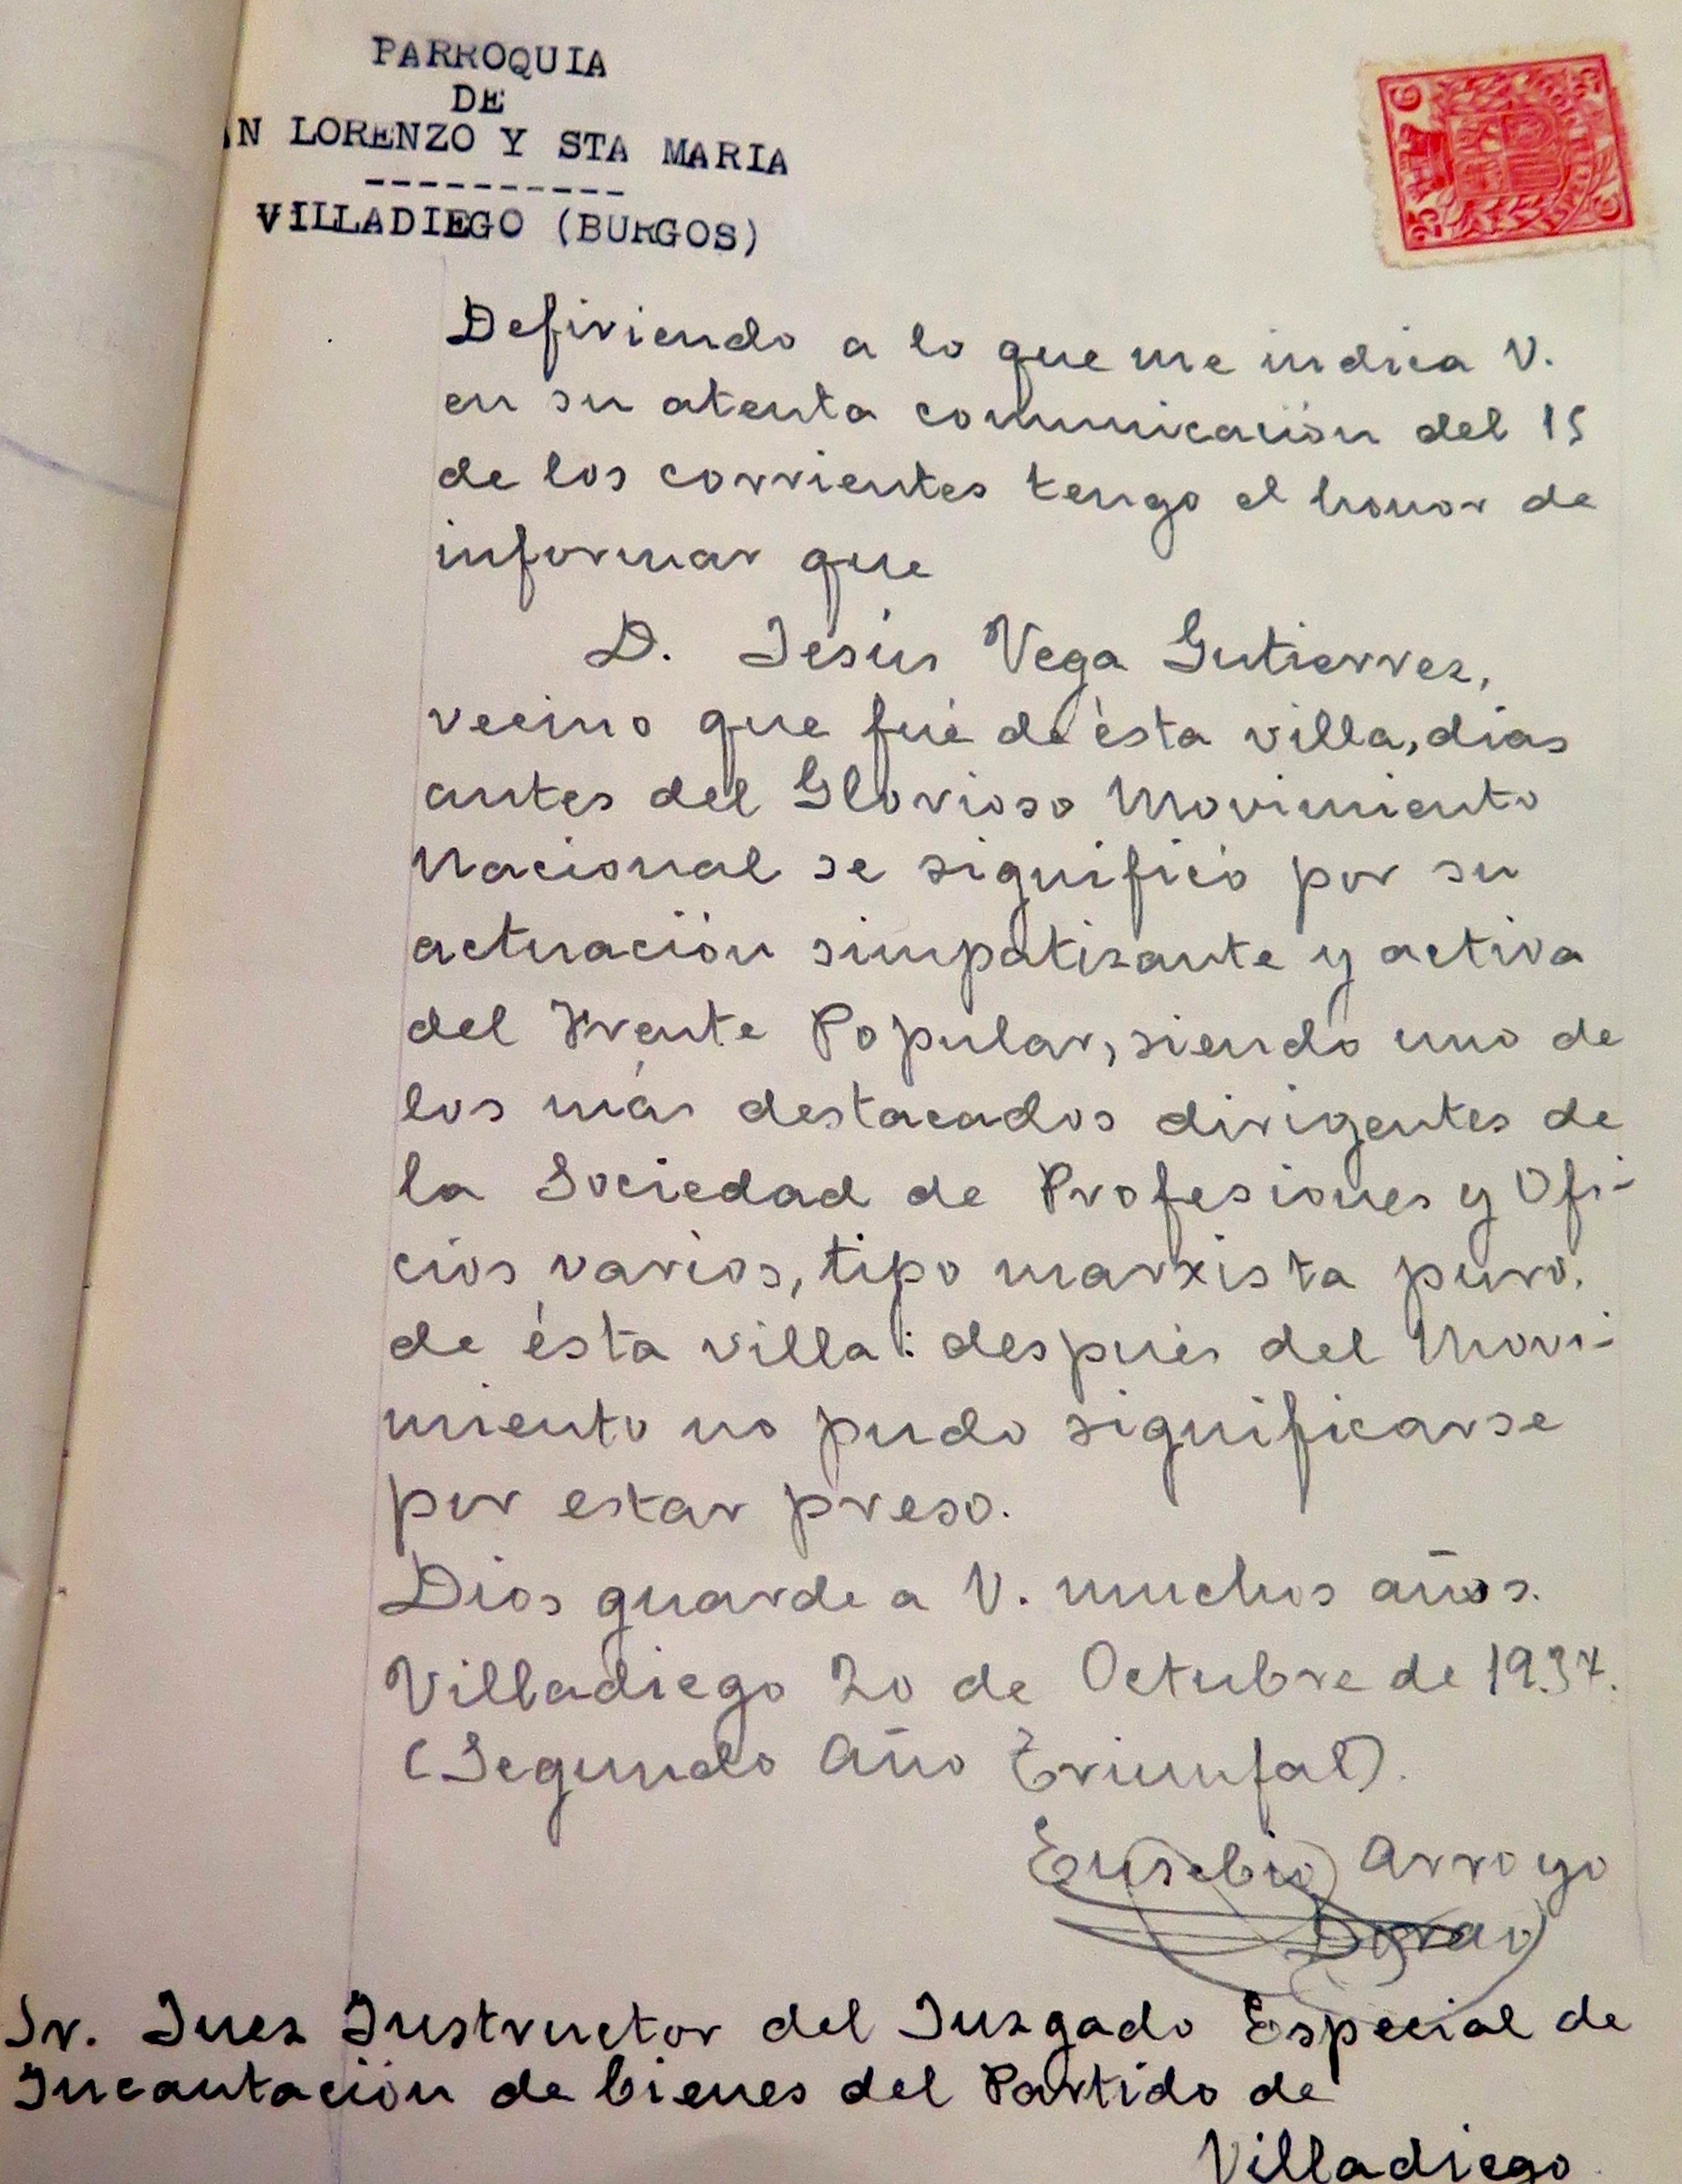 PARROQUIA
DE
N LORENZO Y STA MARIA
----------
VILLADIEGO (BURGOS)
25 CTS
Defiriendo a lo que me indica V.
en su atenta comunicación del 15
de los corrientes tengo el honor de
informar que
D. Jesús Vega Gutierrez,
vecino que fué de ésta villa, dias
antes del Glorioso Movimiento
Nacional se significó por su
actuación simpatizante y activa
del Frente Popular, siendo uno de
los más destacados dirigentes de
la Sociedad de Profesiones y Ofi-
cios varios, tipo marxista puro,
de ésta villa: después del Movi-
miento no pudo significarse
por estar preso.
Dios guarde a V. muchos años.
Villadiego 20 de Octubre de 1937.
(Segundo Año Triunfal).
Eusebio Arroyo
Sr. Juez Instructor del Juzgado Especial de
Incautación de bienes del Partido de
Villadiego